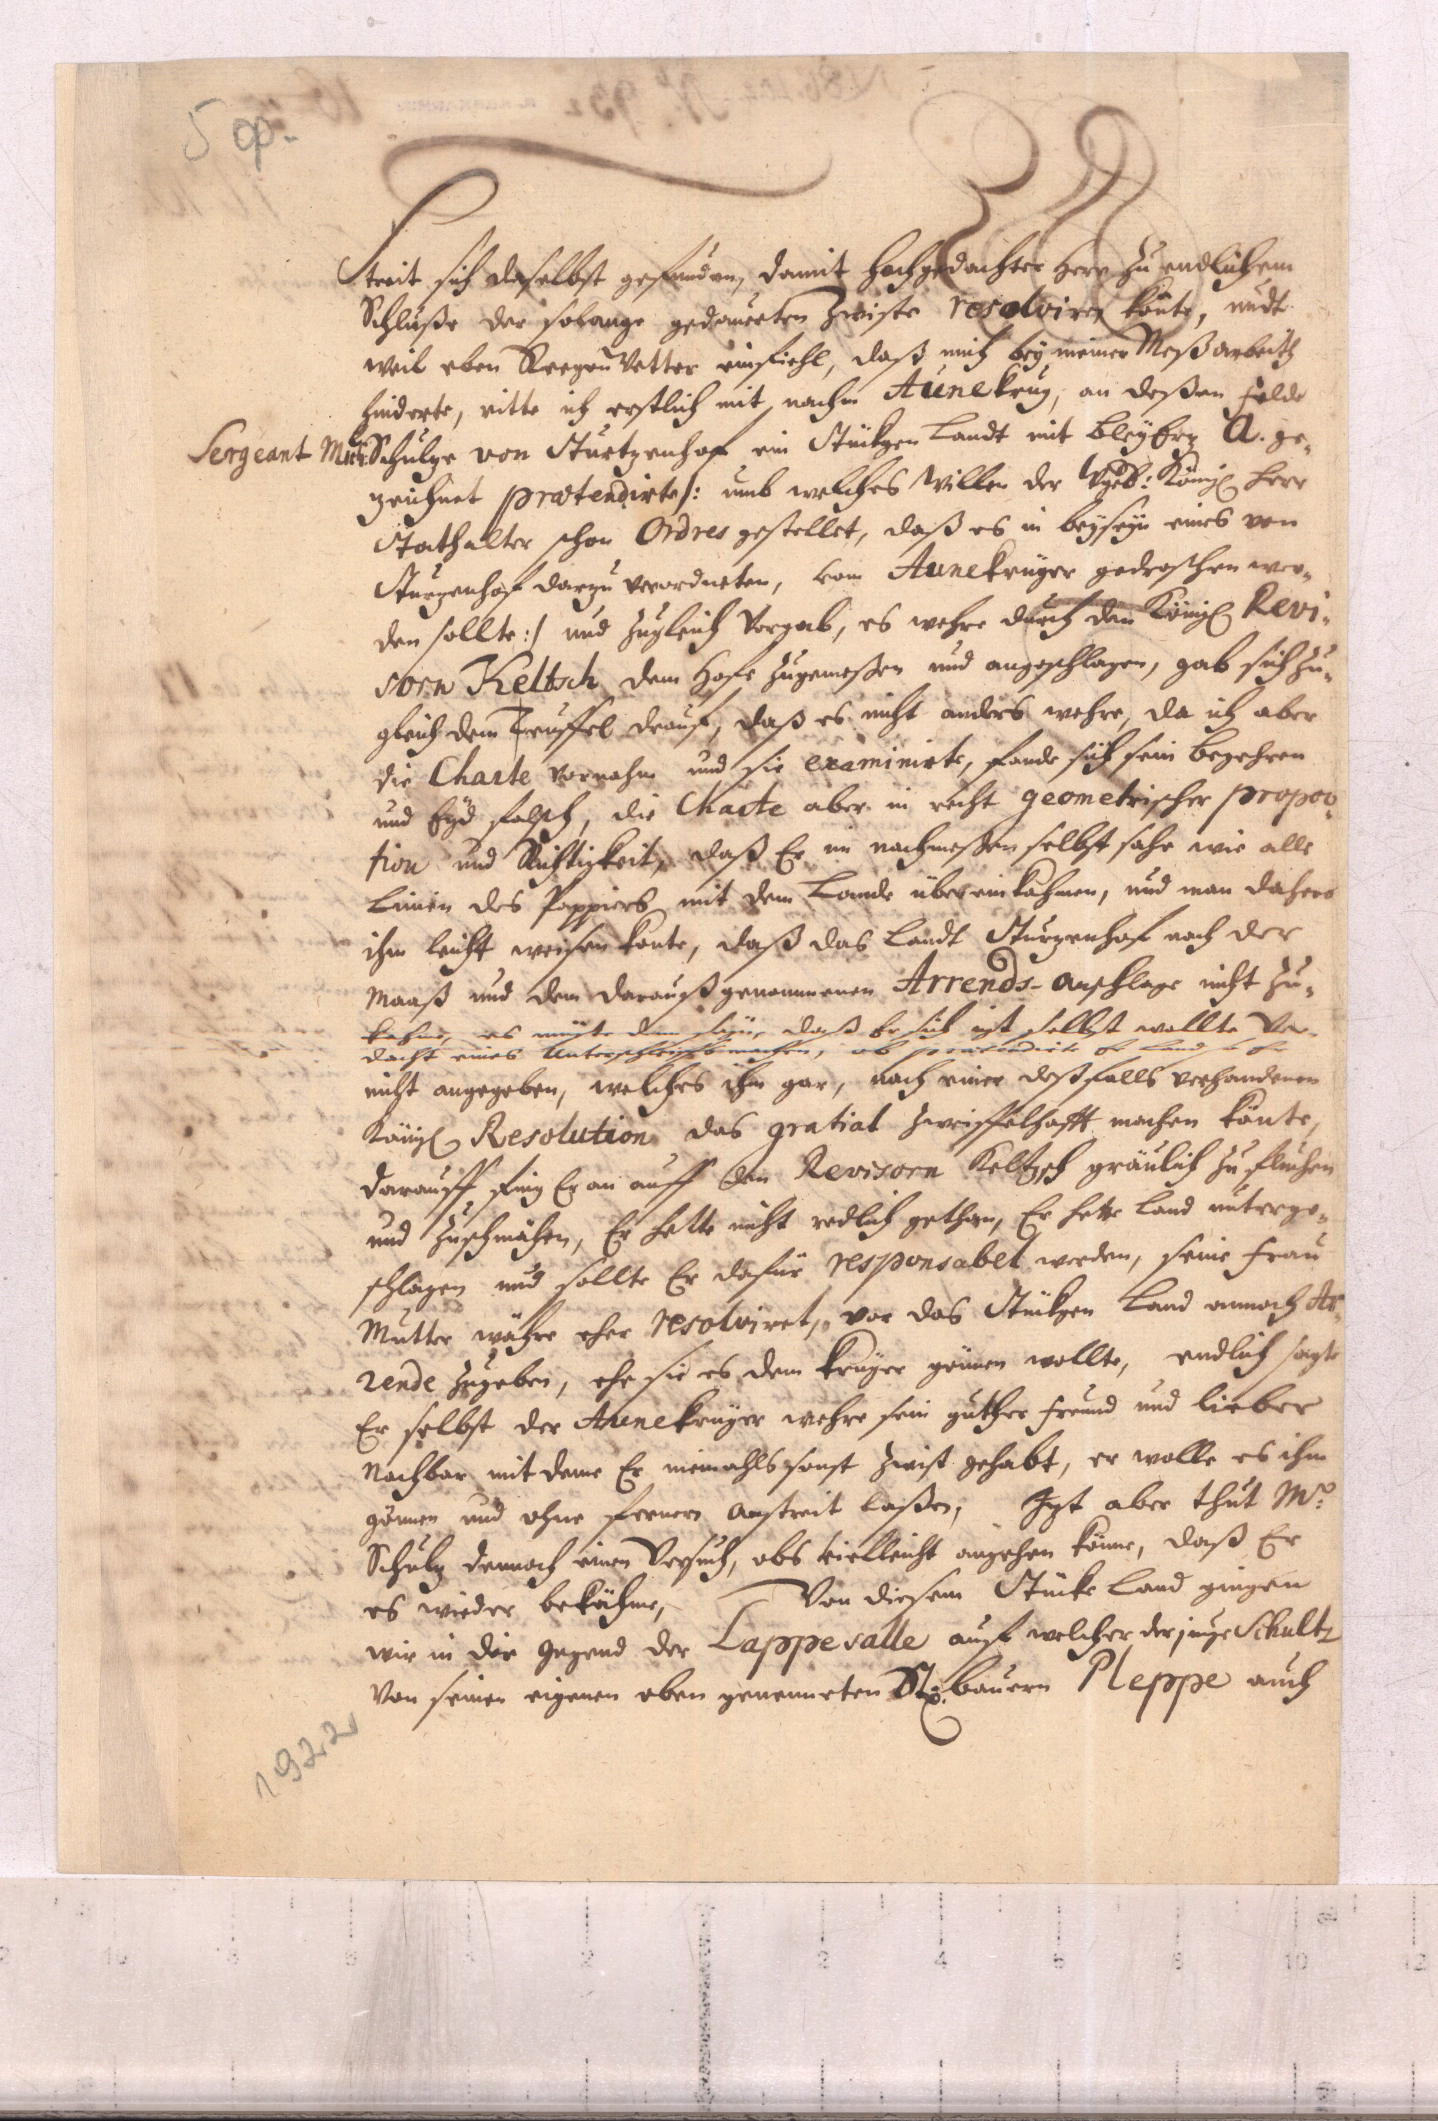 5 cp.
Streit sich daselbst gefunden, damit hochgedachter Herr zu endlichem
Schluße der solange gedaurten Zwiste resolviren könte, undt
weil eben Regen Wetter einfiehl, daß mich bey meiner Meßarbeith
hinderte, ritte ich erstlich mit nachm Aunekrug, an deßen Felde
Sergeant Mns: Schulze von Sturtzenhof ein Stückgen Landt mit bleyErz A. ge-
zeichnet prætendirte /: umb welches Willen der König Herr
Stathalter schon Ordres gestellet, daß es in beyseyn eines von
Sturzenhof darzu verordneten, vom Aunekrüger gedroschen wer-
den sollte :/ und zugleich vorgab, es wehre durch den König Revi-
sorn Keltsch dem Hofe zugemeßen und angeschlagen, gab sich zu-
gleich dem Teuffel drauf, daß es nicht anders wehre, da ich aber
die Charte vornahm und sie examinirte, fande sich sein begehren
und Eyd falsch, die Charte aber in recht geometrischer propor-
tion und Richtigkeit, daß Er im nachmeßen selbst sahe wie alle
Linien des Pappiers mit dem Lande übereinkahmen, und man dahero
ihm leicht weisen konte, daß das Landt Sturzenhof nach der
Maaß und dem darauß genommenen Arrends-anschlage nicht zu-
kahme, es müste dann seyn, daß Er sich izt selbst wollte ver-
dacht eines Unterschleiffs machen, ob prætendirte Er Land so Er
nicht angegeben, welches ihm gar, nach einer deßfalls verhandenen
König Resolution das gratial zweiffelhafft machen könte,
darauff fing Er an auff den Revisorn Keltzsch gräulich zu fluchen
und zuschmähen, Er hette nicht redlich gethan, Er hette Land unterge-
schlagen und sollte Er dafür responsabel werden, seine Frau
Mutter währe eher resolviret, vor das Stückgen Land annoch Ar-
rende zugeben, ehe sie es dem Krüger gönnen wollte, endlich sagte
Er selbst der Aunekrüger wehre sein guther Freund und lieber
Nachbar mit deme Er niemahls sonst Zwist gehabt, er wolle es ihm
gönnen und ohne fernern Anstreit laßen, Izt aber thut Mr:
Schulz dennoch einen Versuch, obs vielleicht angehen könne, daß Er
es wieder bekähme, Von diesem Stücke Land gingen
wir in die Gegend der Lappesalle auf welcher der junge Schultz
von seinen eigenen eben genenneten Stz. bauern Pleppe auch
19322